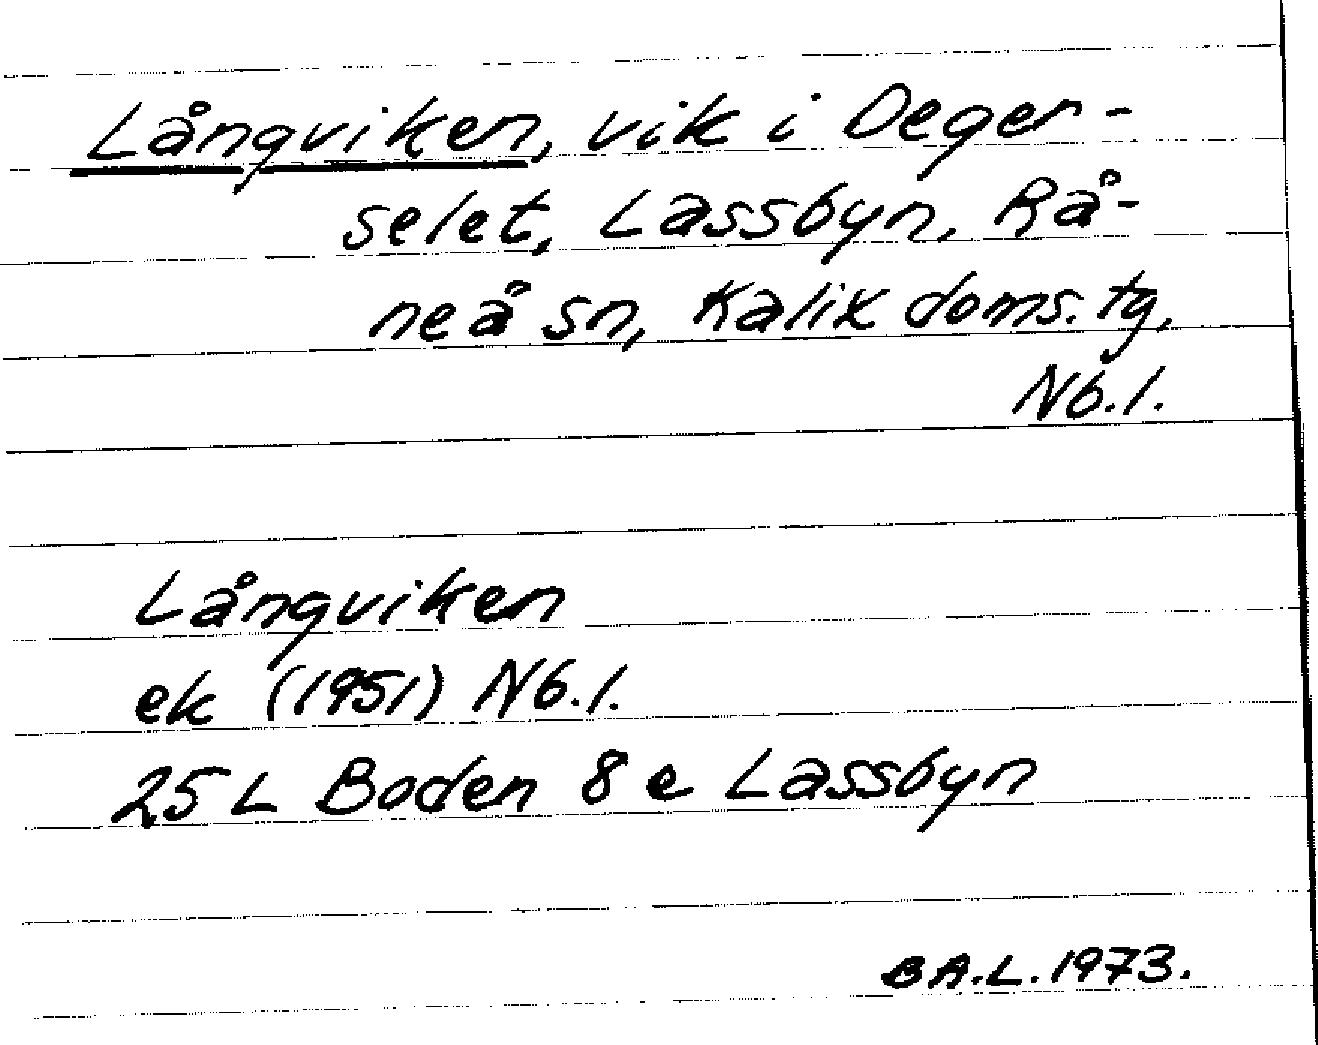 Långviken, vik i Deger-
selet, Lassbyn, Rå-
neå sn, Kalix doms. tg,
Nb.l.
Långviken
ek (1951) Nb.l.
25 L Boden 8 e Lassbyn
BA.L. 1973.